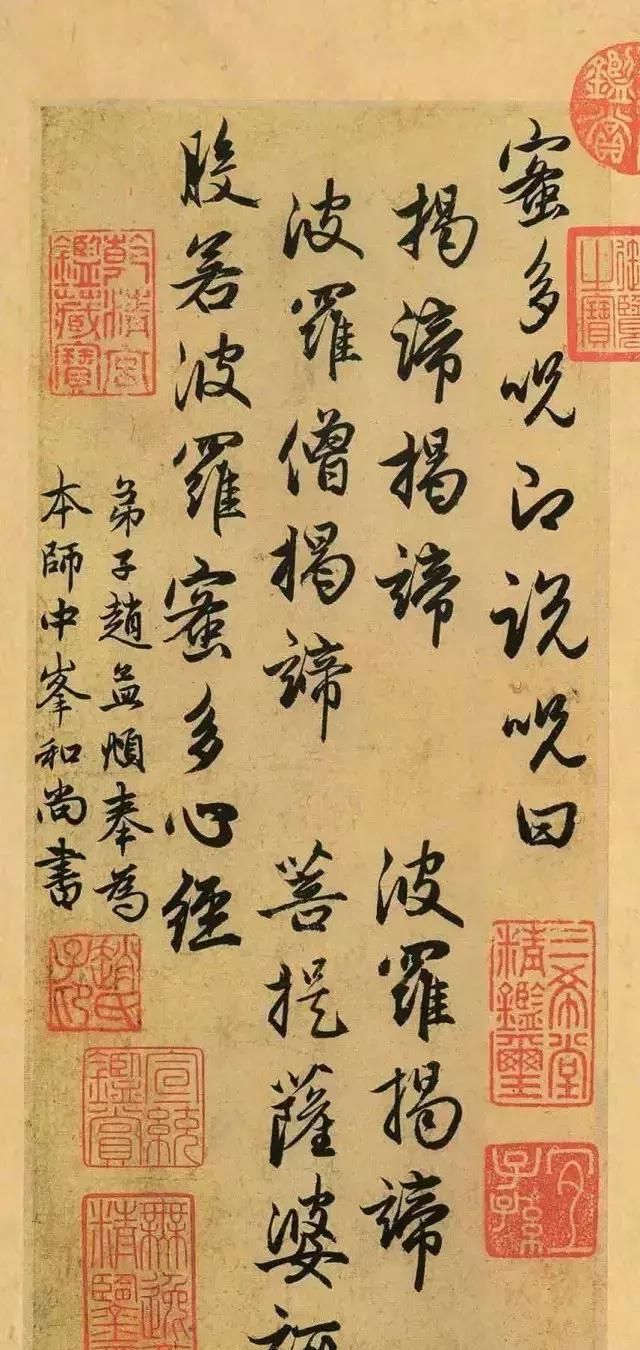 鑑賞
御覽之寶
蜜多呪即説呪曰
三希堂精鑑璽
宜子孫
揭諦揭諦 波羅揭諦
波羅僧揭諦 菩提薩婆訶
般若波羅蜜多心經
弟子趙孟頫奉為
本師中峯和尚書
乾清宮鑑藏寶
趙氏子昂
宣統鑑賞
無逸
精鑑